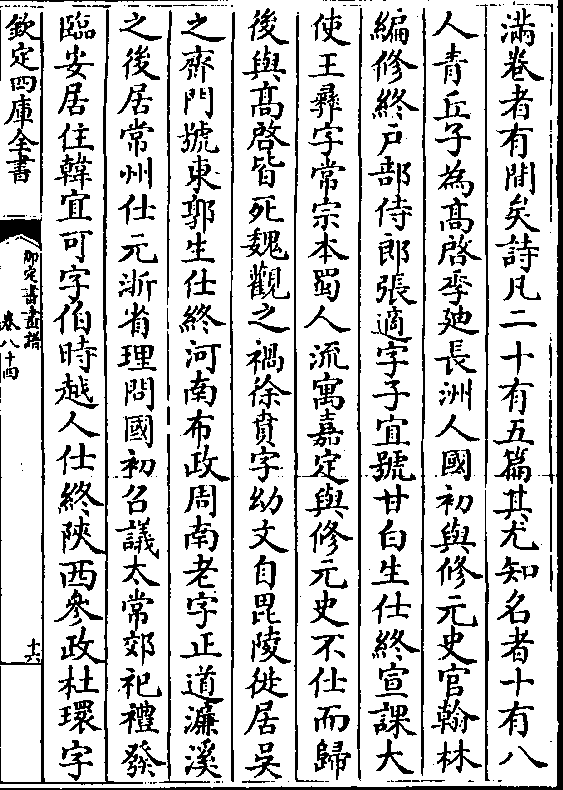 滿卷者有間矣詩凡二十有五篇其尤知名者十有八
人青丘子為高啓季廸長洲人國初與修元史官翰林
編修終戸部侍郎張適字子宜號甘白生仕終宣課大
使王彛字常宗本蜀人流寓嘉定與修元史不仕而歸
後與高啓皆死魏觀之禍徐賁字幼文自毘陵徙居吳
之齊門號東郭生仕終河南布政周南老字正道濂溪
之後居常州仕元浙省理問國初召議太常郊祀禮發
臨安居住韓宜可字伯時越人仕終陜西參政杜環字
欽定四庫全書
御定書畫譜
卷八十四
十六